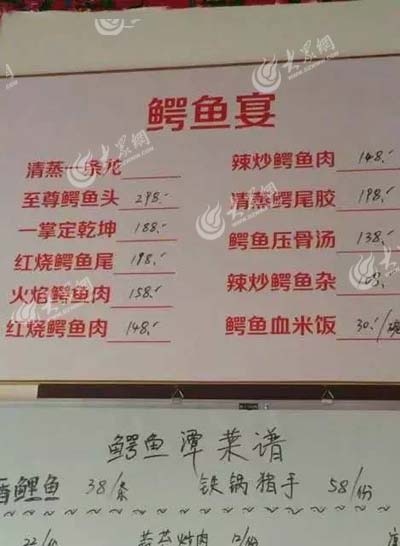 鳄鱼宴
清蒸一条龙
至尊鳄鱼头 298.-
一掌定乾坤 188.-
红烧鳄鱼尾 198.-
火焰鳄鱼肉 158.-
红烧鳄鱼肉 148.-
辣炒鳄鱼肉 148.-
清蒸鳄尾胶 198.-
鳄鱼压骨汤 138.-
辣炒鳄鱼杂
鳄鱼血米饭 30.-/碗
鳄鱼潭菜谱
香鲤鱼 38/条 铁锅猪手 58/份
12/份
大众網